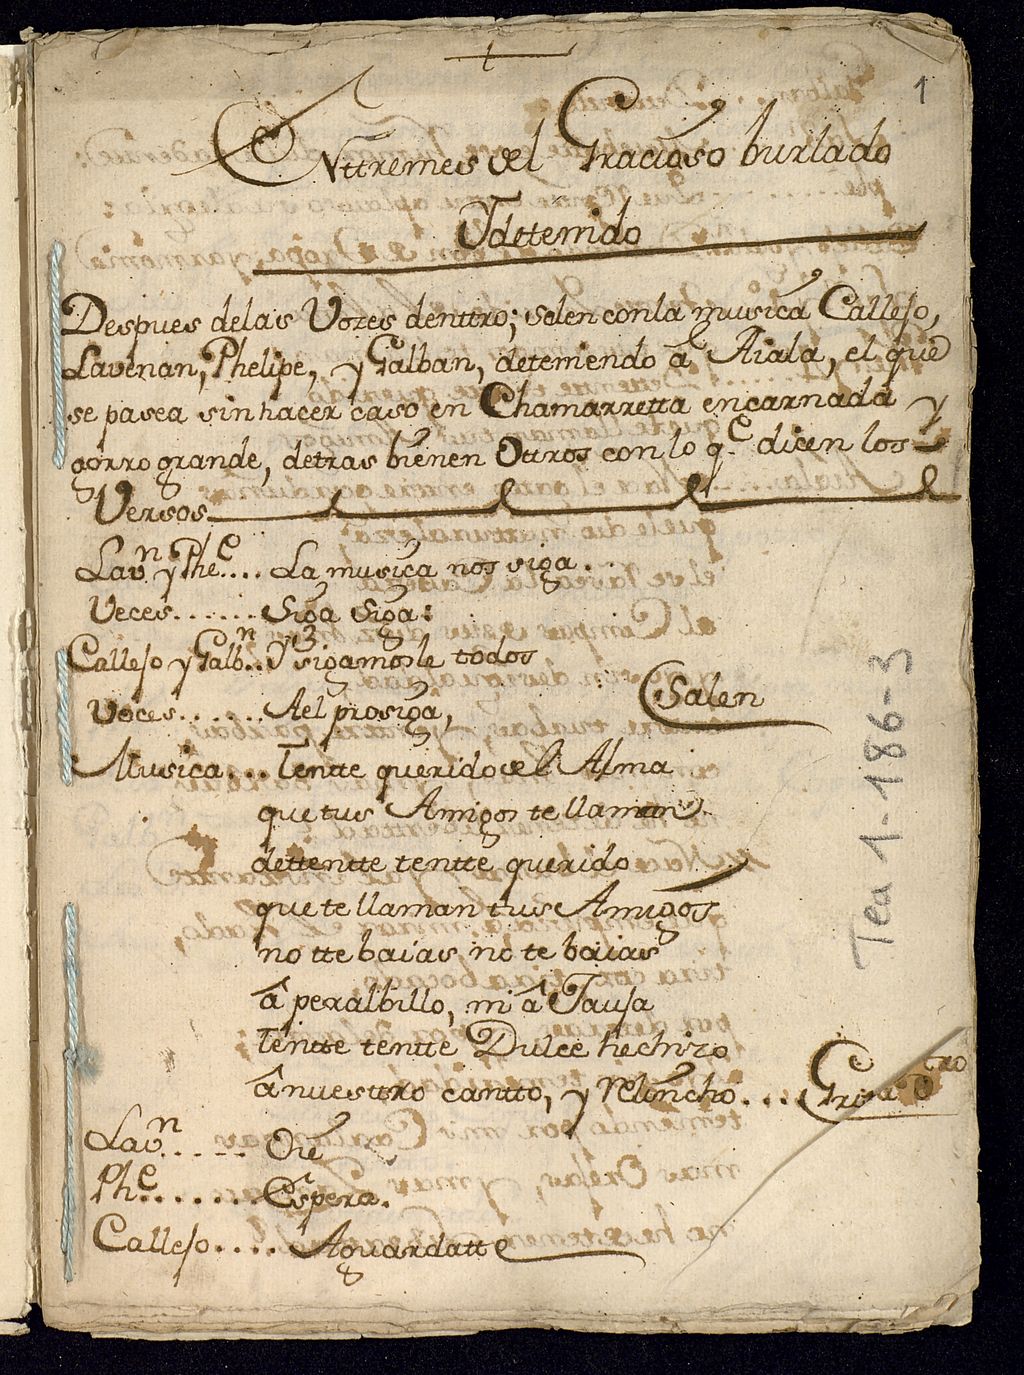 1
Enttremes del Gracioso burlado
Ydettenido
Despues delas Vozes denttro; salen conla musica Callejo,
Lavenan, Phelipe, y Galban, deteniendo â Aiala, el que
se pasea sin hacer caso en Chamarretta encarnada y
gorro grande, detras bienen Ottros con lo q.e dicen los
Versos
Lav.n y Phe.... La musica nos siga.
Veces...... Siga siga:
Callejo y Galb.n.. Y sigamosle todos
Voces...... Ael prosiga,
Salen
Musica... Tentte querido del Alma
que tus Amigos te llaman
dettentte tentte querido
que te llaman tus Amigos
no tte baias no te baias
â peralbillo, ni â Jauja
tentte tentte Dulce hechizo
â nuesttro cantto, y relincho....
Lav.n..... Oie
Ph.e...... Espera.
Callejo.... Aguardatte
Tea 1-186-3